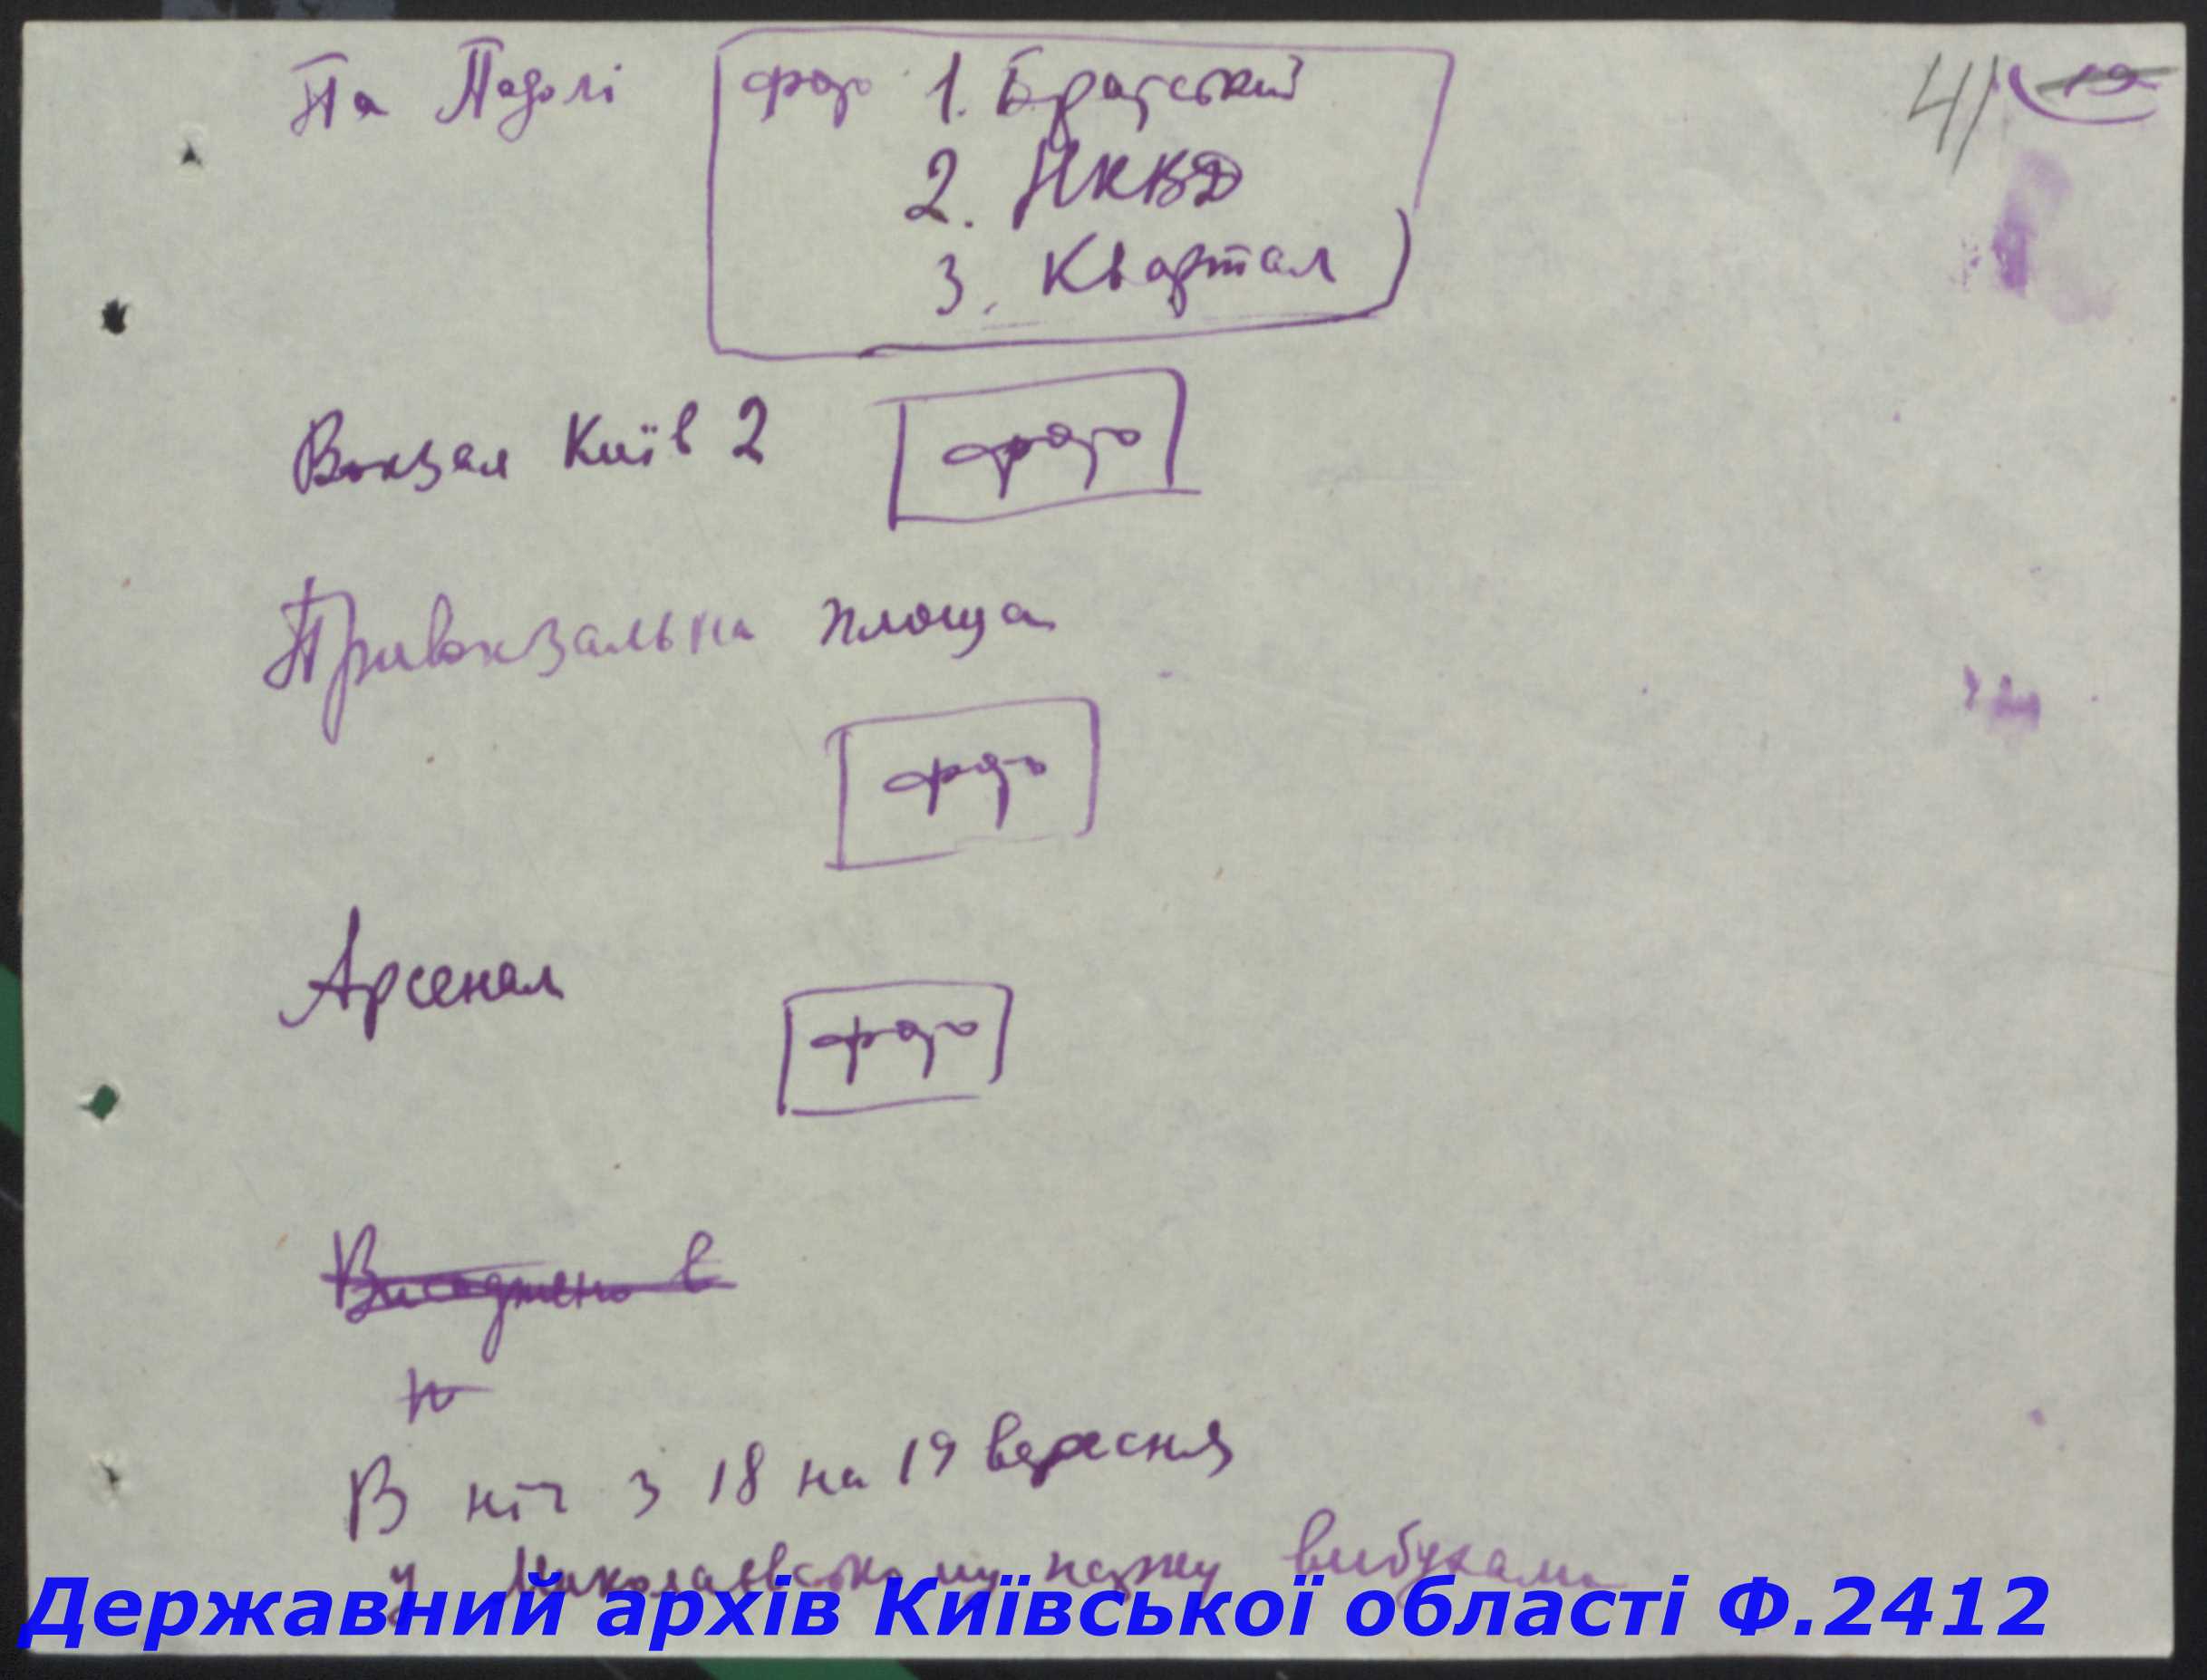 На Подолі фото 1. Братський 41 19
2. НКВД
3. Квартал
Вокзал Київ 2 фото
Привокзальна площа
фото
Арсенал
фото
Висаджено в
В ніч з 18 на 19 вересня
у Миколаєвському парку вибухами
Державний архів Київської області Ф.2412